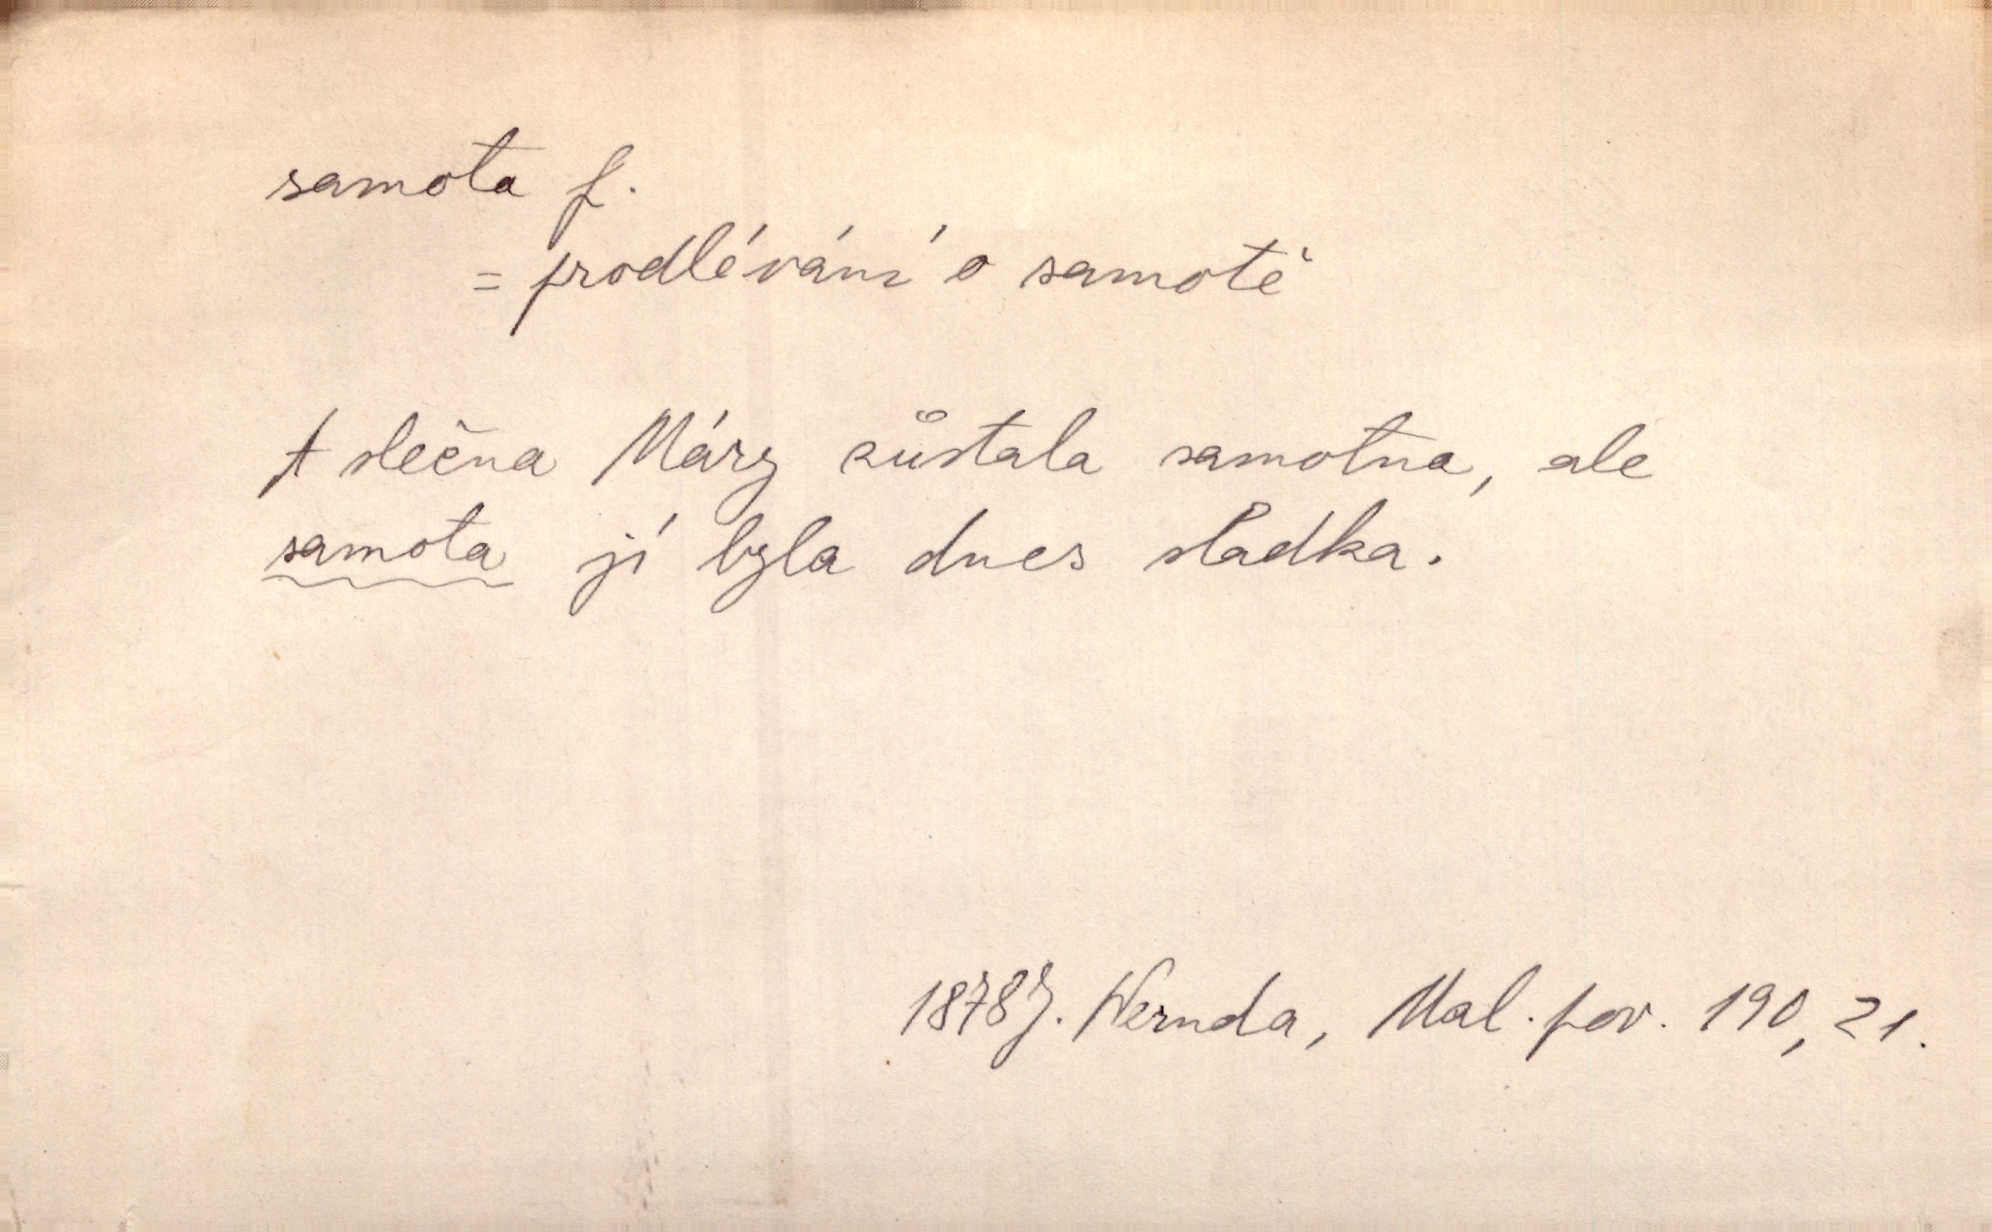 samota f.
= prodlévání o samotě
A slečna Máry zůstala samotna, ale
samota jí byla dnes sladka.
1878 J. Neruda, Mal. pov. 190, 21.